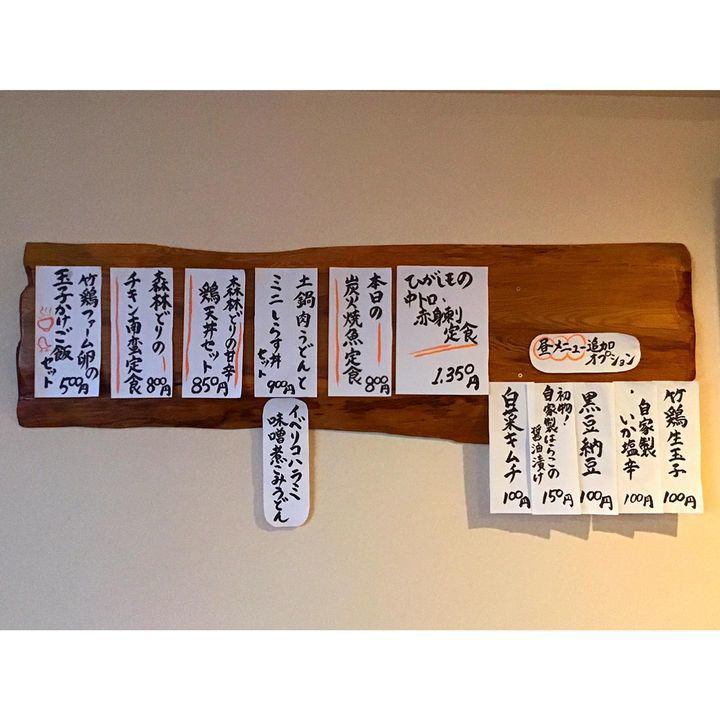 ひがしもの
中トロ、
赤身刺
定食
1,350円
本日の
炭火焼魚定食
800円
土鍋肉うどんと
ミニしらす丼
セット
900円
イベリコハラミ
味噌煮こみうどん
森林どりの甘辛
鶏天丼セット
850円
森林どりの
チキン南蛮定食
800円
竹鶏ファーム卵の
玉子かけご飯
セット
500円
昼メニュー追加
オプション
竹鶏生玉子
100円
自家製
いか塩辛
100円
黒豆納豆
100円
初物!
自家製はらこの
醤油漬け
150円
白菜キムチ
100円